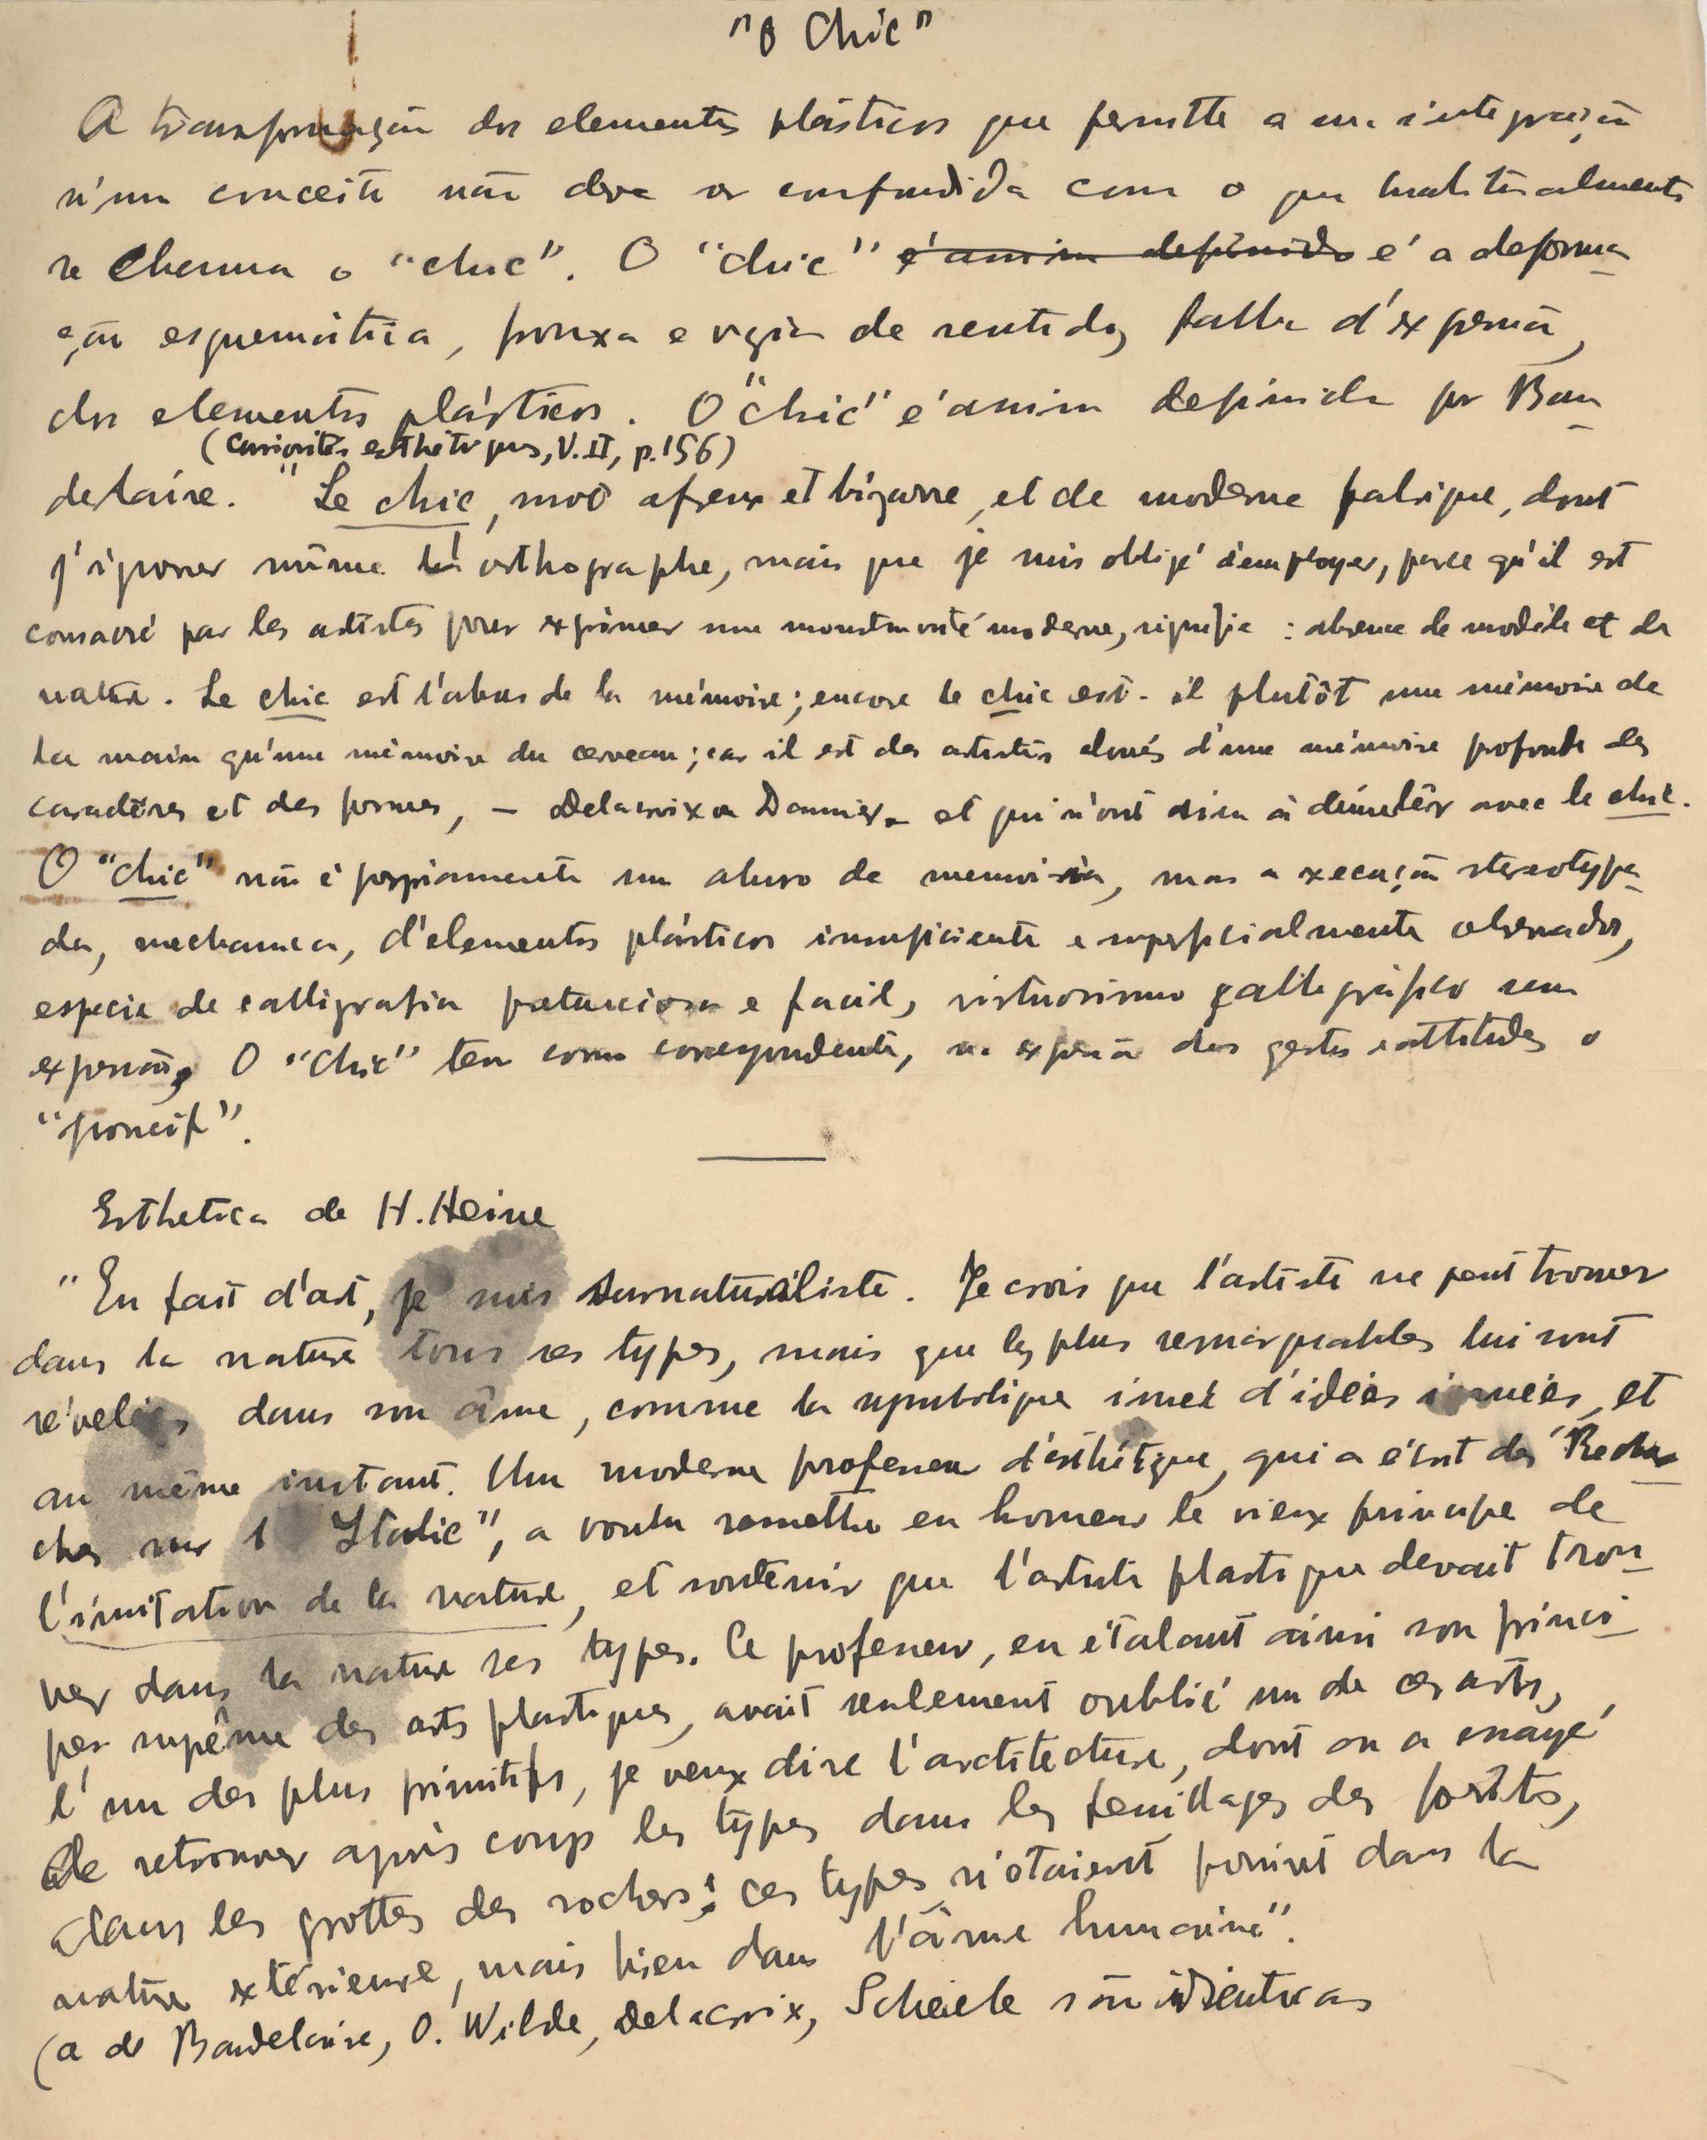 "O Chic"
A transformação dos elementos plásticos que permitte a sua integração
n'um conceito não deve ser confundida com o que habitualmente
se chama o "chic". O "chic" é assim definido é a deforma-
ção esquemática, frouxa e vazia de sentido, falha d'expressão,
dos elementos plásticos. O "chic" é assim definido por Bau-
(Curiosités esthétiques, V. II, p. 156)
delaire. "Le chic, mot afreux et bizarre, et de moderne fabrique, dont
j'ignore même l'orthographe, mais que je suis obligé d'employer, parce qu'il est
consacré par les artistes pour exprimer une monstruosité moderne, signifie : absence de modèle et de
nature. Le chic est l'abus de la mémoire; encore le chic est-il plutôt une mémoire de
la main qu'une mémoire du cerveau; car il est des artistes doués d'une mémoire profonde des
caractères et des formes, - Delacroix ou Daumier - et qui n'ont rien à démêler avec le chic.
O "chic" não é propriamente um abuso de memoria, mas a execução stereotypa-
da, mechanica, d'elementos plásticos insuficiente e superficialmente observados,
especie de calligrafia pretenciosa e facil, virtuosismo calligráfico sem
expressão. O "chic" tem como correspondente, na expressão dos gestos e attitudes o
"poncif".
Esthetica de H. Heine
"En fait d'art, je suis surnaturaliste. Je crois que l'artiste ne peut trouver
dans la nature tous ses types, mais que les plus remarquables lui sont
révelées dans son âme, comme la symbolique innée d'idées innées, et
au même instant. Un moderne professeur d'esthétique, qui a écrit des "Recher-
ches sur l'Italie", a voulu remettre en honneur le vieux principe de
l'imitation de la nature, et soutenir que l'artiste plastique devait trou-
ver dans la nature ses types. Ce professeur, en étalant ainsi son princi-
pe suprême des arts plastiques, avait seulement oublié un de ces arts,
l'un des plus primitifs, je veux dire l'architecture, dont on a essayé
de retrouver après coup les types dans les feuillages des forêts,
dans les grottes des rochers; ces types n'étaient point dans la
nature extérieure, mais bien dans l'âme humaine".
(a de Baudelaire, O. Wilde, Delacroix, Scheele são identicas